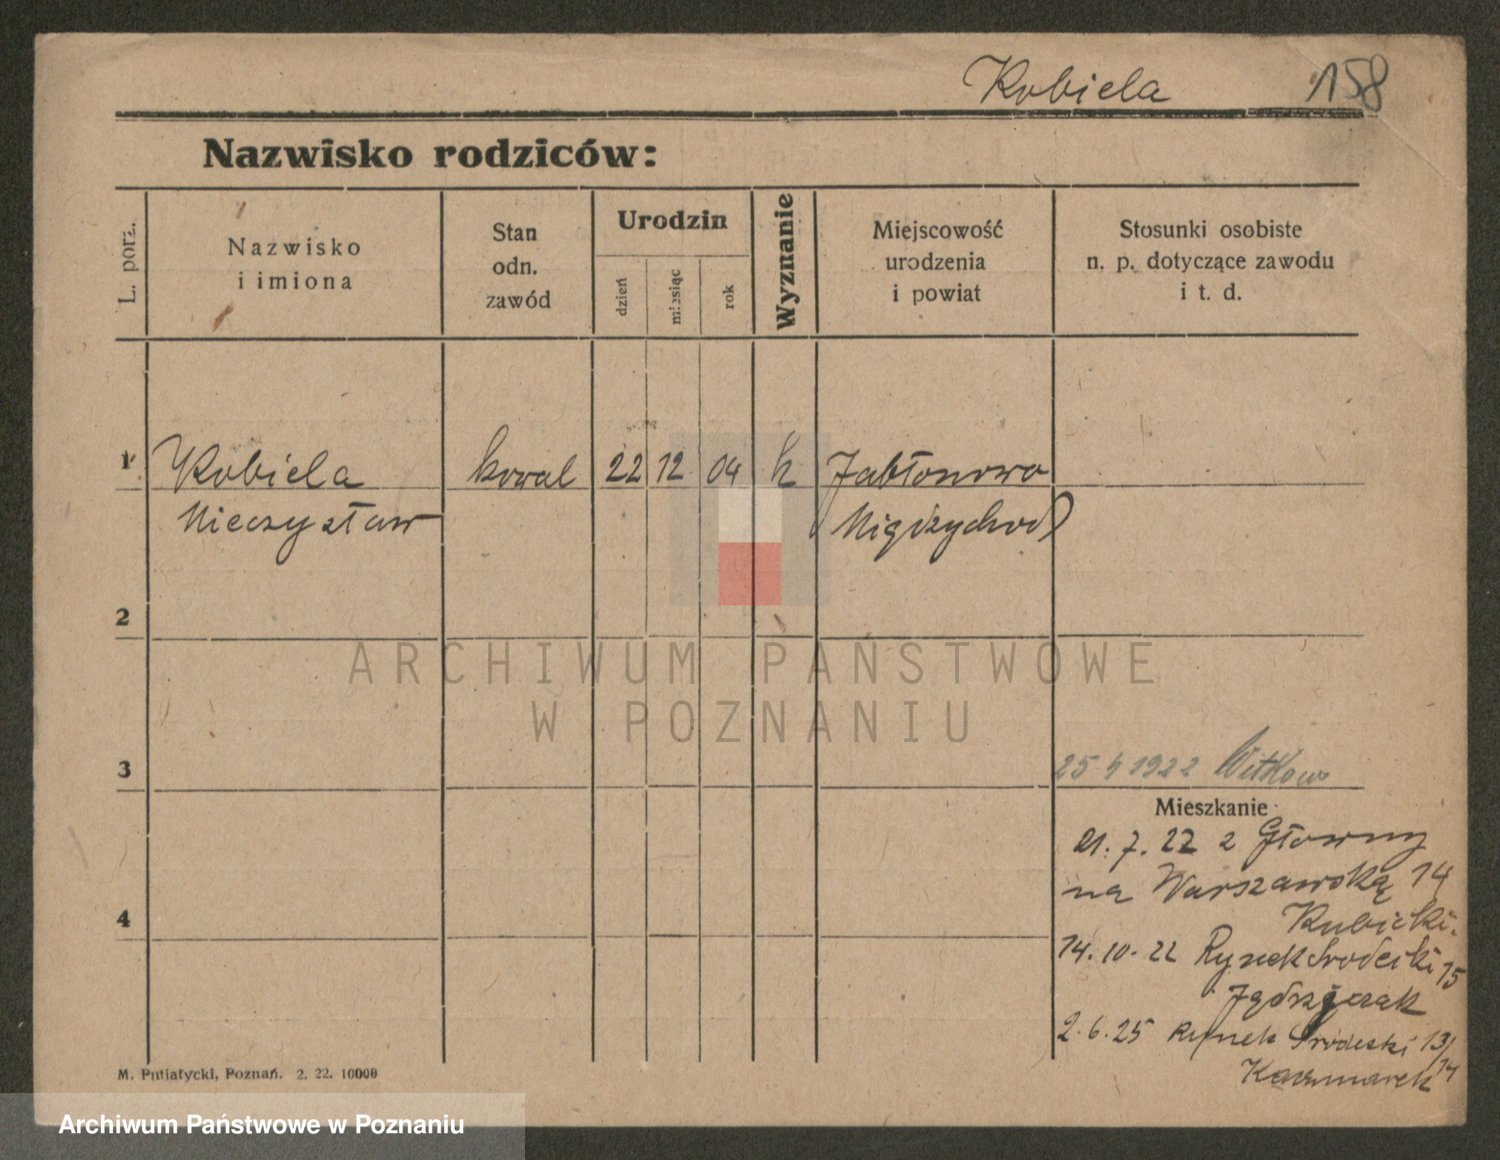 Kobiela 158
Nazwisko rodziców:
L. porz.
Nazwisko
i imiona
Stan
odn.
zawód
Urodzin
dzień
miesiąc
rok
Wyznanie
Miejscowość
urodzenia
i powiat
Stosunki osobiste
n. p. dotyczące zawodu
i t. d.
1 Kobiela kowal 22 12 04 k Jabłonowo
Mieczysław Międzychod
2
ARCHIWUM PAŃSTWOWE
W POZNANIU
3
25 4 1922 Witkowo
Mieszkanie
21. 7. 22 z Główny
na Warszawską 14
Kubicki.
4
14. 10. 22 Rynek Srodecki 15
Jędrzejczak
2. 6. 25 Rynek Srodecki 13/
14
Kaczmarek
M. Putiatycki, Poznań. 2. 22. 10000
Archiwum Państwowe w Poznaniu